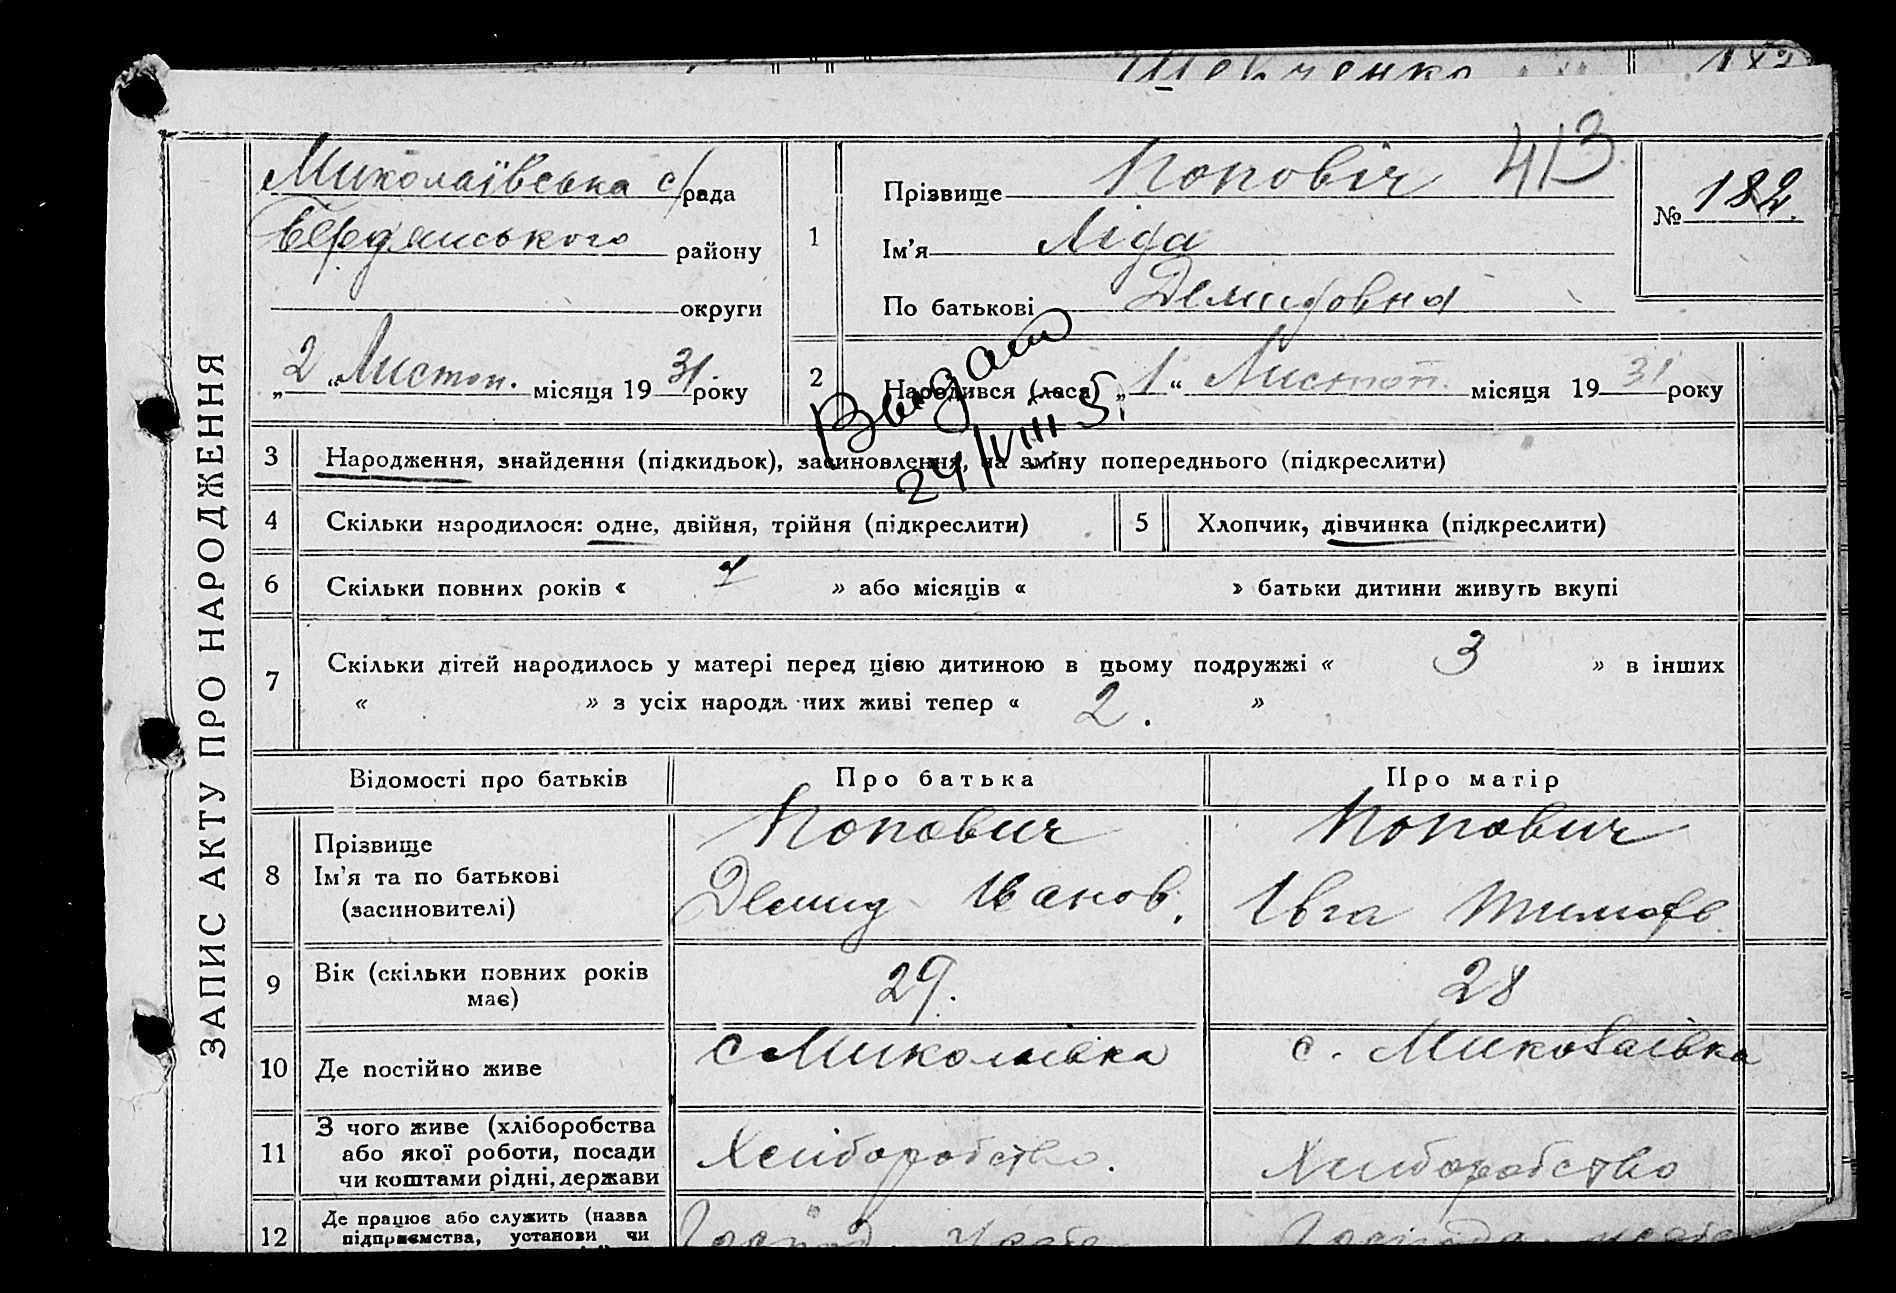 Шевченко
ЗАПИС АКТУ ПРО НАРОДЖЕННЯ
Миколаївська с/рада
Бердянського району
округи
„2" Листоп. місяця 1931 року
1
Прізвище Поповіч 413
Ім'я Ліда
По батькові Демидовна
№ 182.
2
Народився (лася) „1" Листоп. місяця 1931 року
Видано
24/VIII
3 Народження, знайдення (підкидьок), засиновлення, на зміну попереднього (підкреслити)
4 Скільки народилося: одне, двійня, трійня (підкреслити)
5 Хлопчик, дівчинка (підкреслити)
6 Скільки повних років « » або місяців « » батьки дитини живуть вкупі
7 Скільки дітей народилось у матері перед цією дитиною в цьому подружжі « 3 » в інших
« » з усіх народж них живі тепер « 2. »
Відомості про батьків Про батька Про матір
8 Прізвище
Ім'я та по батькові
(засиновителі)
Попович
Демид Іванов.
Попович
Івга Тимофе.
9 Вік (скільки повних років
має)
29. 28
10 Де постійно живе с Миколаівка с. Миколаівка
11 З чого живе (хліборобства
або якої роботи, посади
чи коштами рідні, держави
Хлиборобство. Хлиборобство
12 Де працює або служить (назва
підприємства, установи чи